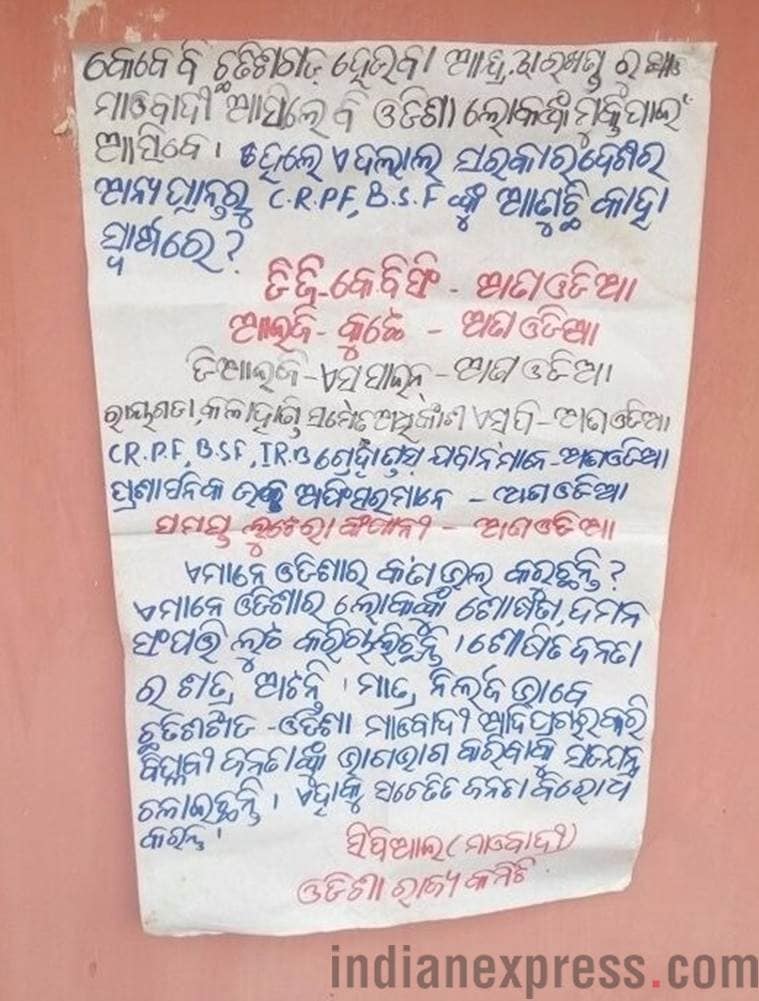 କେବେ ବି ଛତିଶଗଡ଼ ହେଉବା ଆନ୍ଧ୍ର, ଝାରଖଣ୍ଡ ର
ମାଓବାଦୀ ଆସିଲେ ବି ଓଡିଶା ଲୋକଙ୍କ ମୁକ୍ତି ପାଇଁ
ଆସିବେ । ହେଲେ ଏ ଦଲାଲ ସରକାର ଦେଶର
ଅନ୍ୟ ପ୍ରାନ୍ତରୁ C.R.P.F, B.S.F କୁ ଆଣୁଛି କାହା
ସ୍ୱାର୍ଥରେ ?
ଡିଜି-କେବିସିଂ - ଅଣଓଡିଆ
ଆଇଜି- କୁଟେ - ଅଣଓଡିଆ
ଡିଆଇଜି-ଏସ ସାଇନ-ଅଣଓଡିଆ
ରାୟଗଡା, କଳାହାଣ୍ଡି ସମେତ ଅଧିକାଂଶ ଏସପି-ଅଣଓଡିଆ
C.R.P.F, B.S.F, I.R.B ଗ୍ରେହାଉଣ୍ଡସ୍ ଯବାନମାନେ-ଅଣଓଡିଆ
ପ୍ରଶାସନିକ ଉଚ୍ଚ ଅଫିସରମାନେ - ଅଣଓଡିଆ
ସମସ୍ତ ଲୁଟେରା କଂପାନୀ - ଅଣଓଡିଆ
ଏମାନେ ଓଡିଶାର କଣ ଭଲ କରୁଛନ୍ତି ?
ଏମାନେ ଓଡିଶାର ଲୋକଙ୍କୁ ଶୋଷଣ, ଦମନ
ସଂପତ୍ତି ଲୁଟ କରିଚାଲିଛନ୍ତି । ଶୋଷିତ ଜନତା
ର ଶତ୍ରୁ ଅଟନ୍ତି । ମାତ୍ର ନିର୍ଲଜ ଭାବେ
ଛତିଶଗଡ - ଓଡିଶା ମାଓବାଦୀ ଆଦି ପ୍ରଚାର କରି
ବିପ୍ଳବୀ ଜନତାଙ୍କୁ ଭାଗଭାଗ କରିବାକୁ ସଡଯନ୍ତ୍ର
ଚଳାଇଛନ୍ତି । ଏହାକୁ ସଚେତିତ ଜନତା ବିରୋଧ
କରନ୍ତୁ ।
ସିପିଆଇ (ମାଓବାଦୀ)
ଓଡିଶା ରାଜ୍ୟ କମିଟି
indianexpress.com